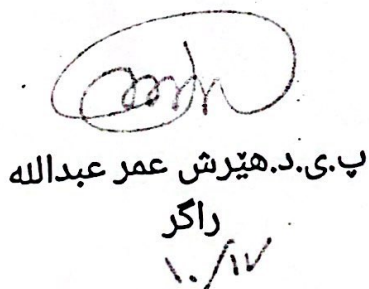 پ.ی.د.هێرش عمر عبدالله
راگر
١٠/١٧